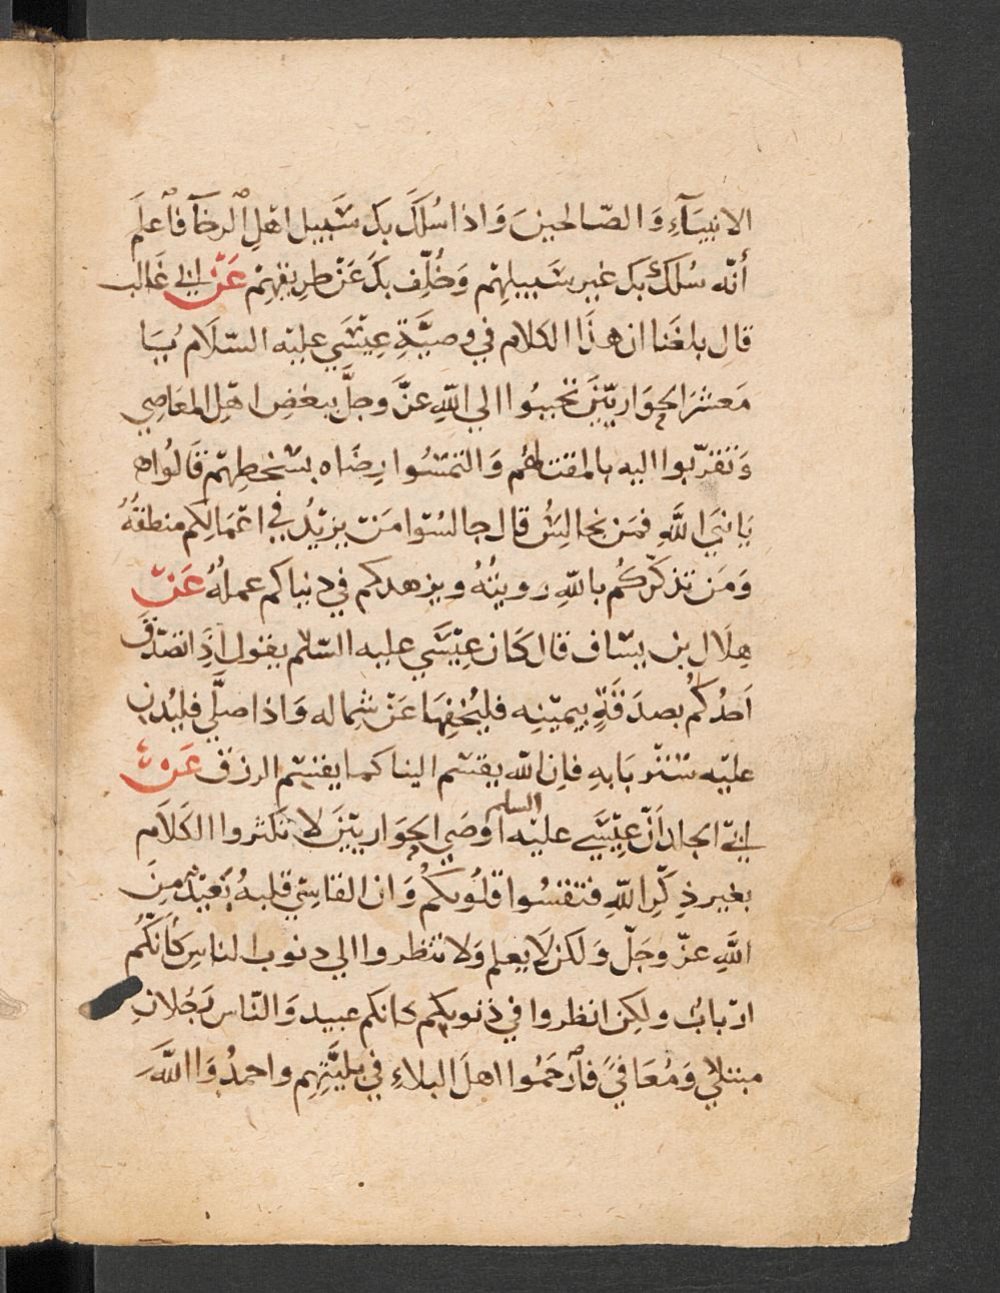 الانبيَآءِ وَالصّالحينَ وَاذا سُلكَ بكَ سَبيل اهْلِ الرخآءِ فَاعلَم
أنّه سُلكَ بكَ غير سَبيلهِمْ وَخُلِّف بكَ عَنْ طريقهِمْ عَنْ ابي غَالب
قال بلغَنا ان هذَا الكلام في وصيَّةِ عِيْسَي عليْه السّلَام يَا
مَعشرَ الحوَاريّيْنَ تحببُوا الي اللهِ عزَّ وجلَّ ببغضِ اهْلِ المعَاصِي
وَتقرّبوا اليه بالمقت لهُم وَالتمسُوا رِضَاه بسَخطِهِمْ قَالُوا
يَا نبيَ اللَّهِ فمَن نجالِسُ قال جالسُوا مَنْ يزيْدُ في اعْمَالِكم منطقُهُ
وَمَن تذكّركُم باللهِ رويتُهُ ويزهدكم في دنياكم عملُهُ عَنْ
هِلَال بن يسَاف قال كَان عِيْسَي عليه السّلم يقول إذَا تصَدّقَ
اَحدُكُم بصدَقَةٍ بيميْنِه فليُخفِهَا عَنْ شِماله وَاذا صلَّي فليُدنِ
عليْه سْترَ بَابهِ فاِن الله يقسْم الينا كما يقسِم الرزقَ عَنْ
ابي الجلد أنّ عِيْسَي عليْه السلم اوصَي الحوَارييْنَ لا تكثروا الكَلَام
بغير ذِكرِ اللهِ فتقسُوا قلُوبكُم وَان القاسِي قلبهُ بَعيْدٌ مِنَ
اللَّهِ عزّ وجَلّ وَلكن لَا يعلم وَلا تنظروا الي دنوب الناسِ كأنّكُم
ارْبابٌ ولكِن انظروا في ذنوبكم كانكم عبيد وَالنّاس رَجُلانِ
مبتلاي وَمُعَافيً فاَرْحَمُوا اهلَ البلاءِ في بليَّتِهِم واحمدُوَا اللَّهَ